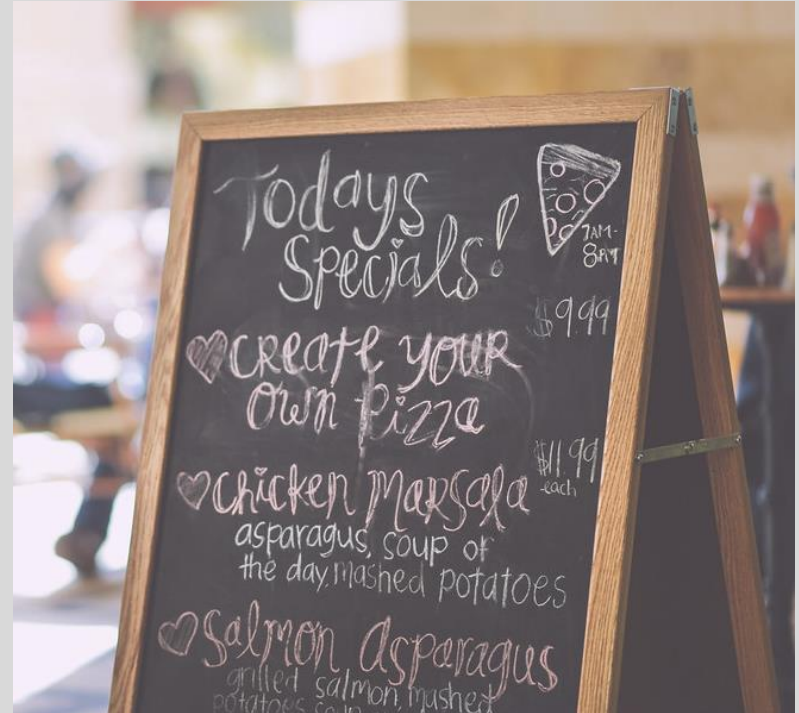 Todays
Specials!
7AM-
8PM
$9.99
create your
own Pizza
$11.99
each
chicken Marsala
asparagus, soup of
the day, mashed potatoes
Salmon Asparagus
grilled salmon, mashed
potatoes, soup